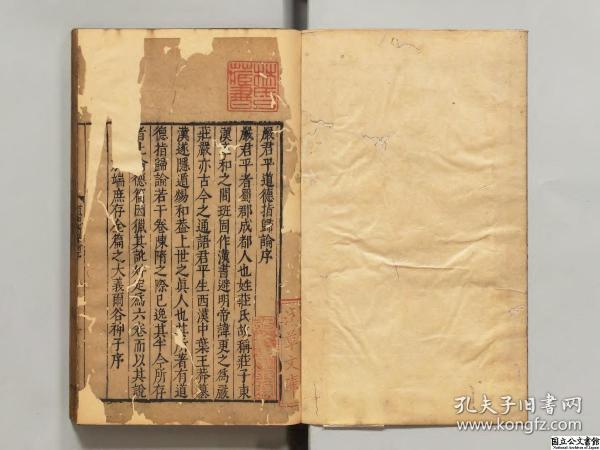 嚴君平道德指歸論序
嚴君平者蜀郡成都人也姓莊氏故稱莊子東
漢章和之間班固作漢書避明帝諱更之為嚴
莊嚴亦古今之通語君平生西漢中葉王莽篡
漢遂隱遁煬和蓋上世之真人也其 者有道
德指歸論若干卷陳隋之際已逸其半今所存
者止 論德篇因獵其訛舛定為六卷而以其說
端庶存全篇之大義爾谷神子序
林氏
藏書
孔夫子旧书网
www.kongfz.com
国立公文書館
National Archives of Japan